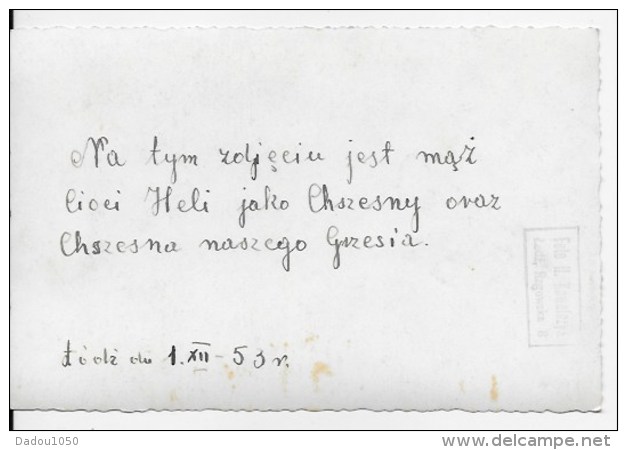 Na tym zdjęciu jest mąż
Cioci Heli jako Chszesny oraz
Chszesna naszego Grzesia.
Łódź dn 1.XII-53 r.
Dadou1050
delcampe.net